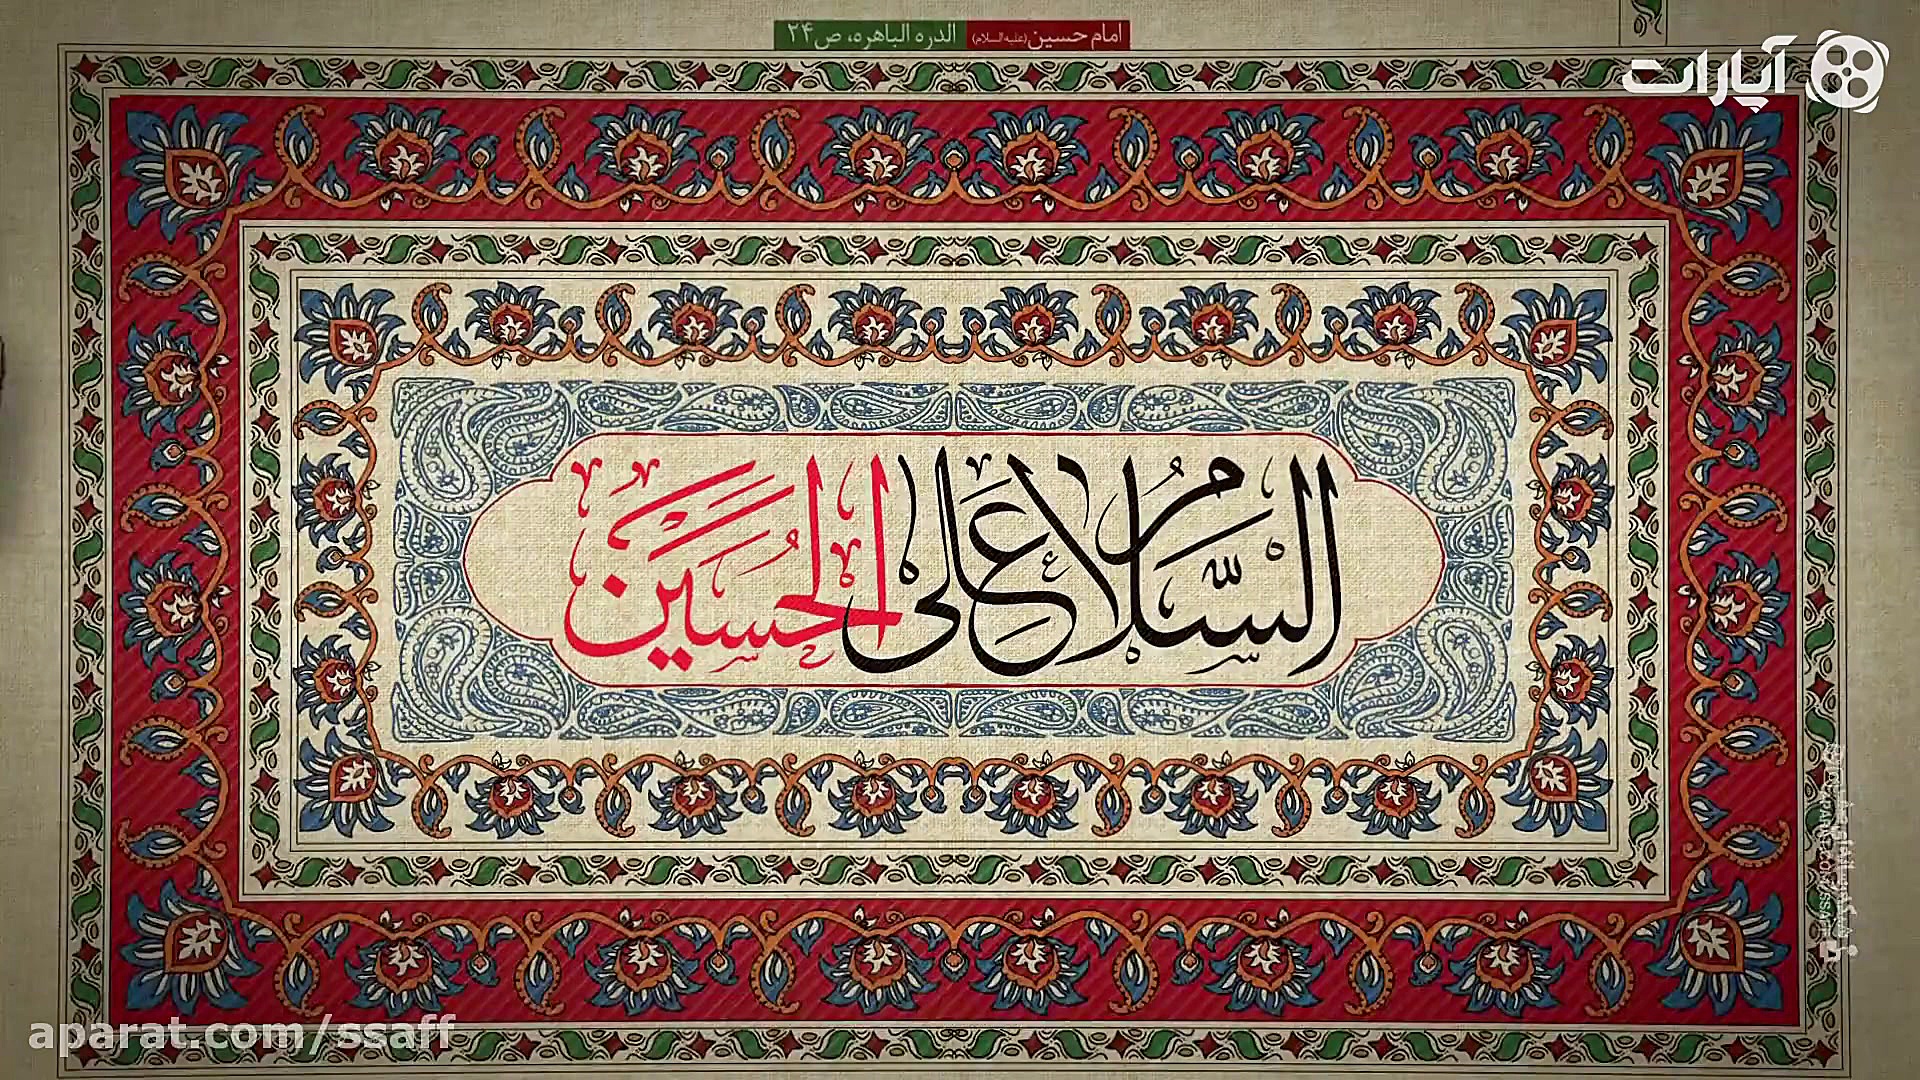 امام حسین (علیه السلام) الدره الباهره، ص۲۴
آپارات
السَّلامُ عَلَى الحُسَيْن
aparat.com/ssaff